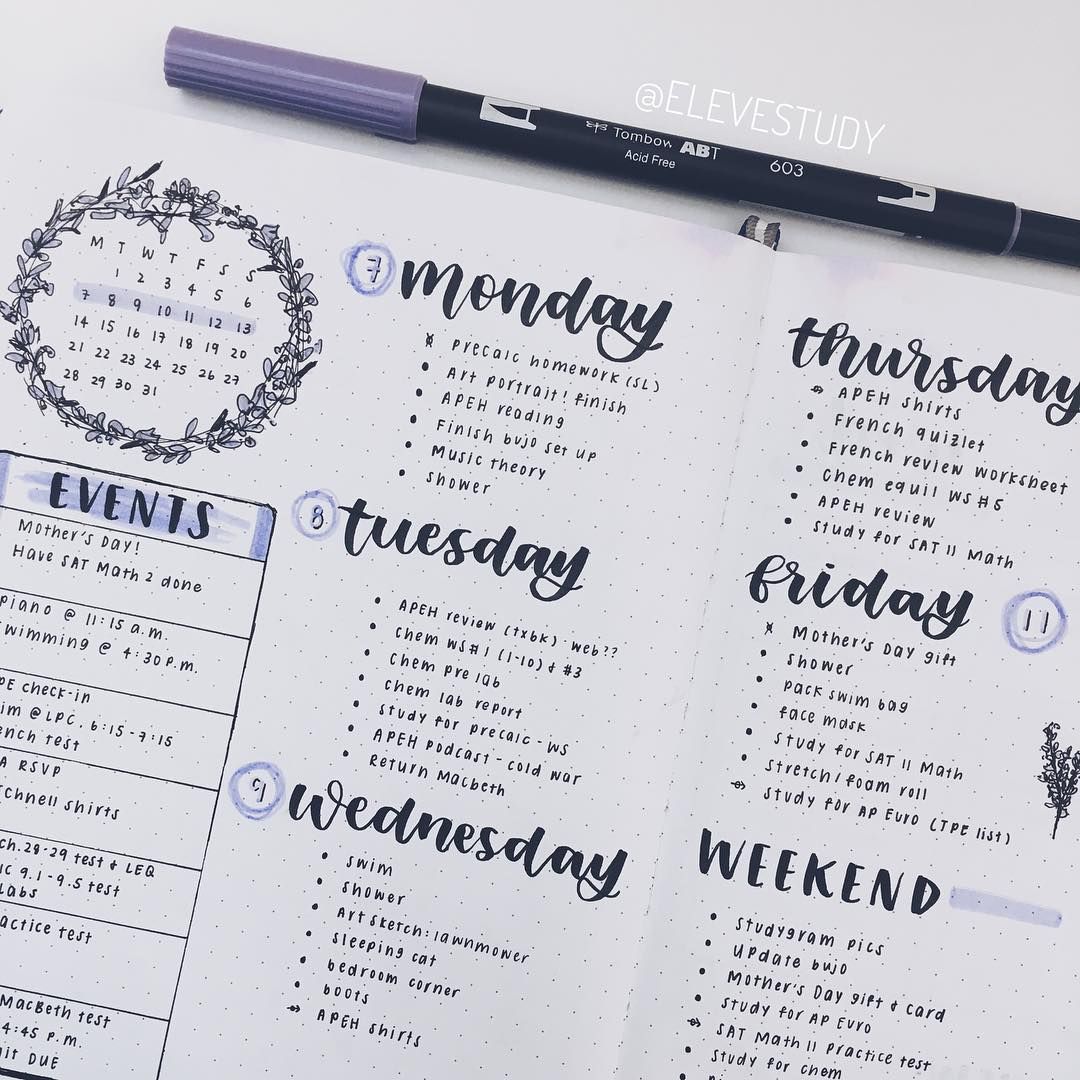 @ELEVESTUDY
Tombow ABT
Acid Free
603
M T W T F S S
1 2 3 4 5 6
7 8 9 10 11 12 13
14 15 16 17 18 19 20
21 22 23 24 25 26 27
28 29 30 31
EVENTS
Mother's Day!
Have SAT Math 2 done
piano @ 11:15 a.m.
swimming @ 4:30 p.m.
PE check-in
im @ LPC, 6:15-7:15
ench test
A RSVP
tchnell shirts
ch. 28-29 test & LEQ
IC 9.1-9.5 test
Labs
actice test
MacBeth test
4:45 p.m.
it DUE
7 monday
Precalc homework (SL)
Art portrait! finish
APEH reading
Finish bujo set up
Music theory
shower
8 tuesday
APEH review (txbk) - web??
Chem WS #1 (1-10) & #3
Chem pre lab
Chem lab report
study for precalc - WS
APEH podcast - cold war
Return Macbeth
9 wednesday
swim
shower
Art sketch: lawnmower
sleeping cat
bedroom corner
boots
APEH shirts
thursday
APEH shirts
French quizlet
French review worksheet
Chem equil WS #5
APEH review
study for SAT II Math
friday 11
Mother's Day gift
shower
pack swim bag
face mask
study for SAT II Math
stretch/foam roll
study for AP Euro (TPE list)
WEEKEND
studygram pics
Update bujo
Mother's Day gift & card
study for AP Euro
SAT Math II practice test
study for chem